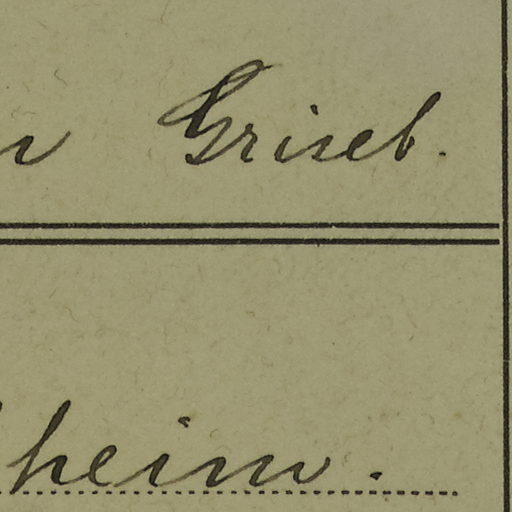 Griseb.
heim.